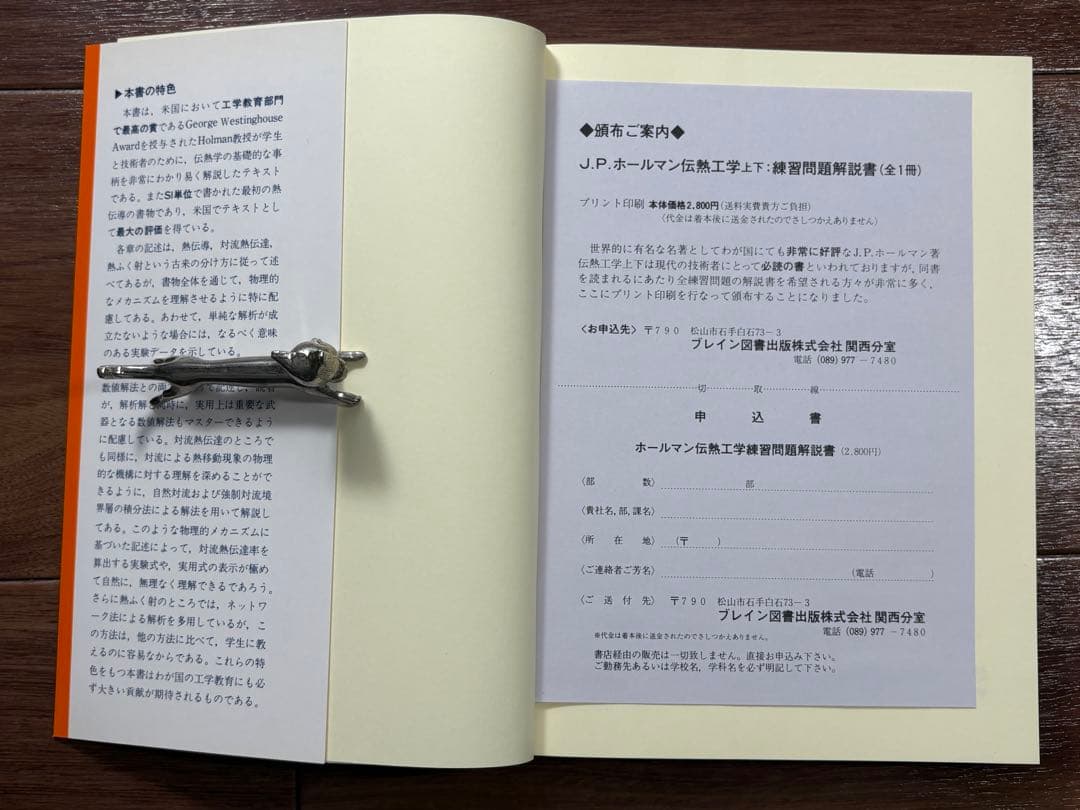 ▶本書の特色
本書は，米国において工学教育部門
で最高の賞であるGeorge Westinghouse
Awardを授与されたHolman教授が学生
と技術者のために，伝熱学の基礎的な事
柄を非常にわかり易く解説したテキスト
である。またSI単位で書かれた最初の熱
伝導の書物であり，米国でテキストとし
て最大の評価を得ている。
各章の記述は，熱伝導，対流熱伝達，
熱ふく射という古来の分け方に従って述
べてあるが，書物全体を通じて，物理的
なメカニズムを理解させるように特に配
慮してある。あわせて，単純な解析が成
立たないような場合には，なるべく意味
のある実験データを示している。
数値解法との
が，解析解と同時に，実用上は重要な武
器となる数値解法もマスターできるよう
に配慮している。対流熱伝達のところで
も同様に，対流による熱移動現象の物理
的な機構に対する理解を深めることがで
きるように，自然対流および強制対流境
界層の積分法による解法を用いて解説し
てある。このような物理的メカニズムに
基づいた記述によって，対流熱伝達率を
算出する実験式や，実用式の表示が極め
て自然に，無理なく理解できるであろう。
さらに熱ふく射のところでは，ネットワ
ーク法による解析を多用しているが，こ
の方法は，他の方法に比べて，学生に教
えるのに容易なからである。これらの特
色をもつ本書はわが国の工学教育にも必
ず大きい貢献が期待されるものである。
◆頒布ご案内◆
J.P.ホールマン伝熱工学上下：練習問題解説書（全1冊）
プリント印刷 本体価格2,800円（送料実費貴方ご負担）
〈代金は着本後に送金されたのでさしつかえありません〉
世界的に有名な名著としてわが国にても非常に好評なJ.P.ホールマン著
伝熱工学上下は現代の技術者にとって必読の書といわれておりますが，同書
を読まれるにあたり全練習問題の解説書を希望される方々が非常に多く，
ここにプリント印刷を行なって頒布することになりました。
〈お申込先〉 〒790 松山市石手白石73－3
ブレイン図書出版株式会社 関西分室
電話 (089) 977－7480
切 取 線
申 込 書
ホールマン伝熱工学練習問題解説書（2,800円）
〈部 数〉 部
〈貴社名，部，課名〉
〈所 在 地〉 （〒 ）
〈ご連絡者ご芳名〉 （電話 ）
〈ご 送 付 先〉 〒790 松山市石手白石73－3
ブレイン図書出版株式会社 関西分室
電話 (089) 977－7480
※代金は着本後に送金されたのでさしつかえありません。
書店経由の販売は一切致しません。直接お申込み下さい。
ご勤務先あるいは学校名，学科名を必ず明記して下さい。